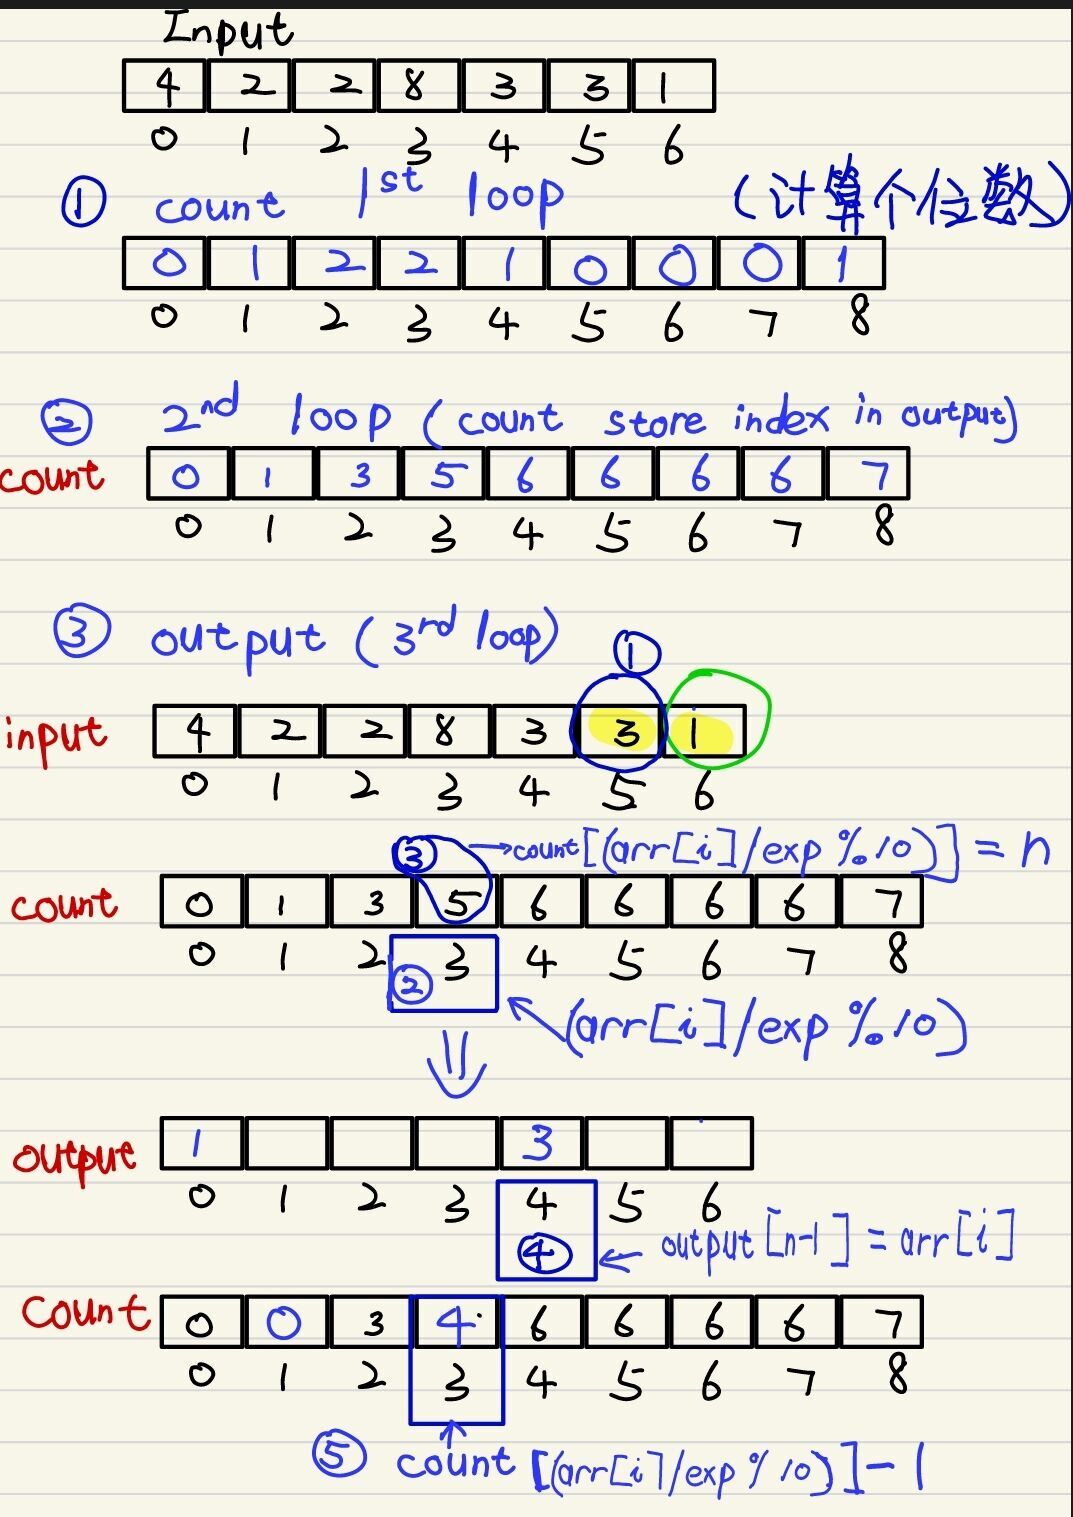 Input
4 2 2 8 3 3 1
0 1 2 3 4 5 6
① count 1st loop (计算个位数)
0 1 2 2 1 0 0 0 1
0 1 2 3 4 5 6 7 8
② 2nd loop (count store index in output)
count 0 1 3 5 6 6 6 6 7
0 1 2 3 4 5 6 7 8
③ output (3rd loop)
①
input 4 2 2 8 3 3 1
0 1 2 3 4 5 6
③ count[(arr[i]/exp%10)] = n
count 0 1 3 5 6 6 6 6 7
0 1 2 3 4 5 6 7 8
②
(arr[i]/exp%10)
output 1 3
0 1 2 3 4 5 6
④ output[n-1] = arr[i]
Count 0 0 3 4 6 6 6 6 7
0 1 2 3 4 5 6 7 8
⑤ count [(arr[i]/exp%10)]-1